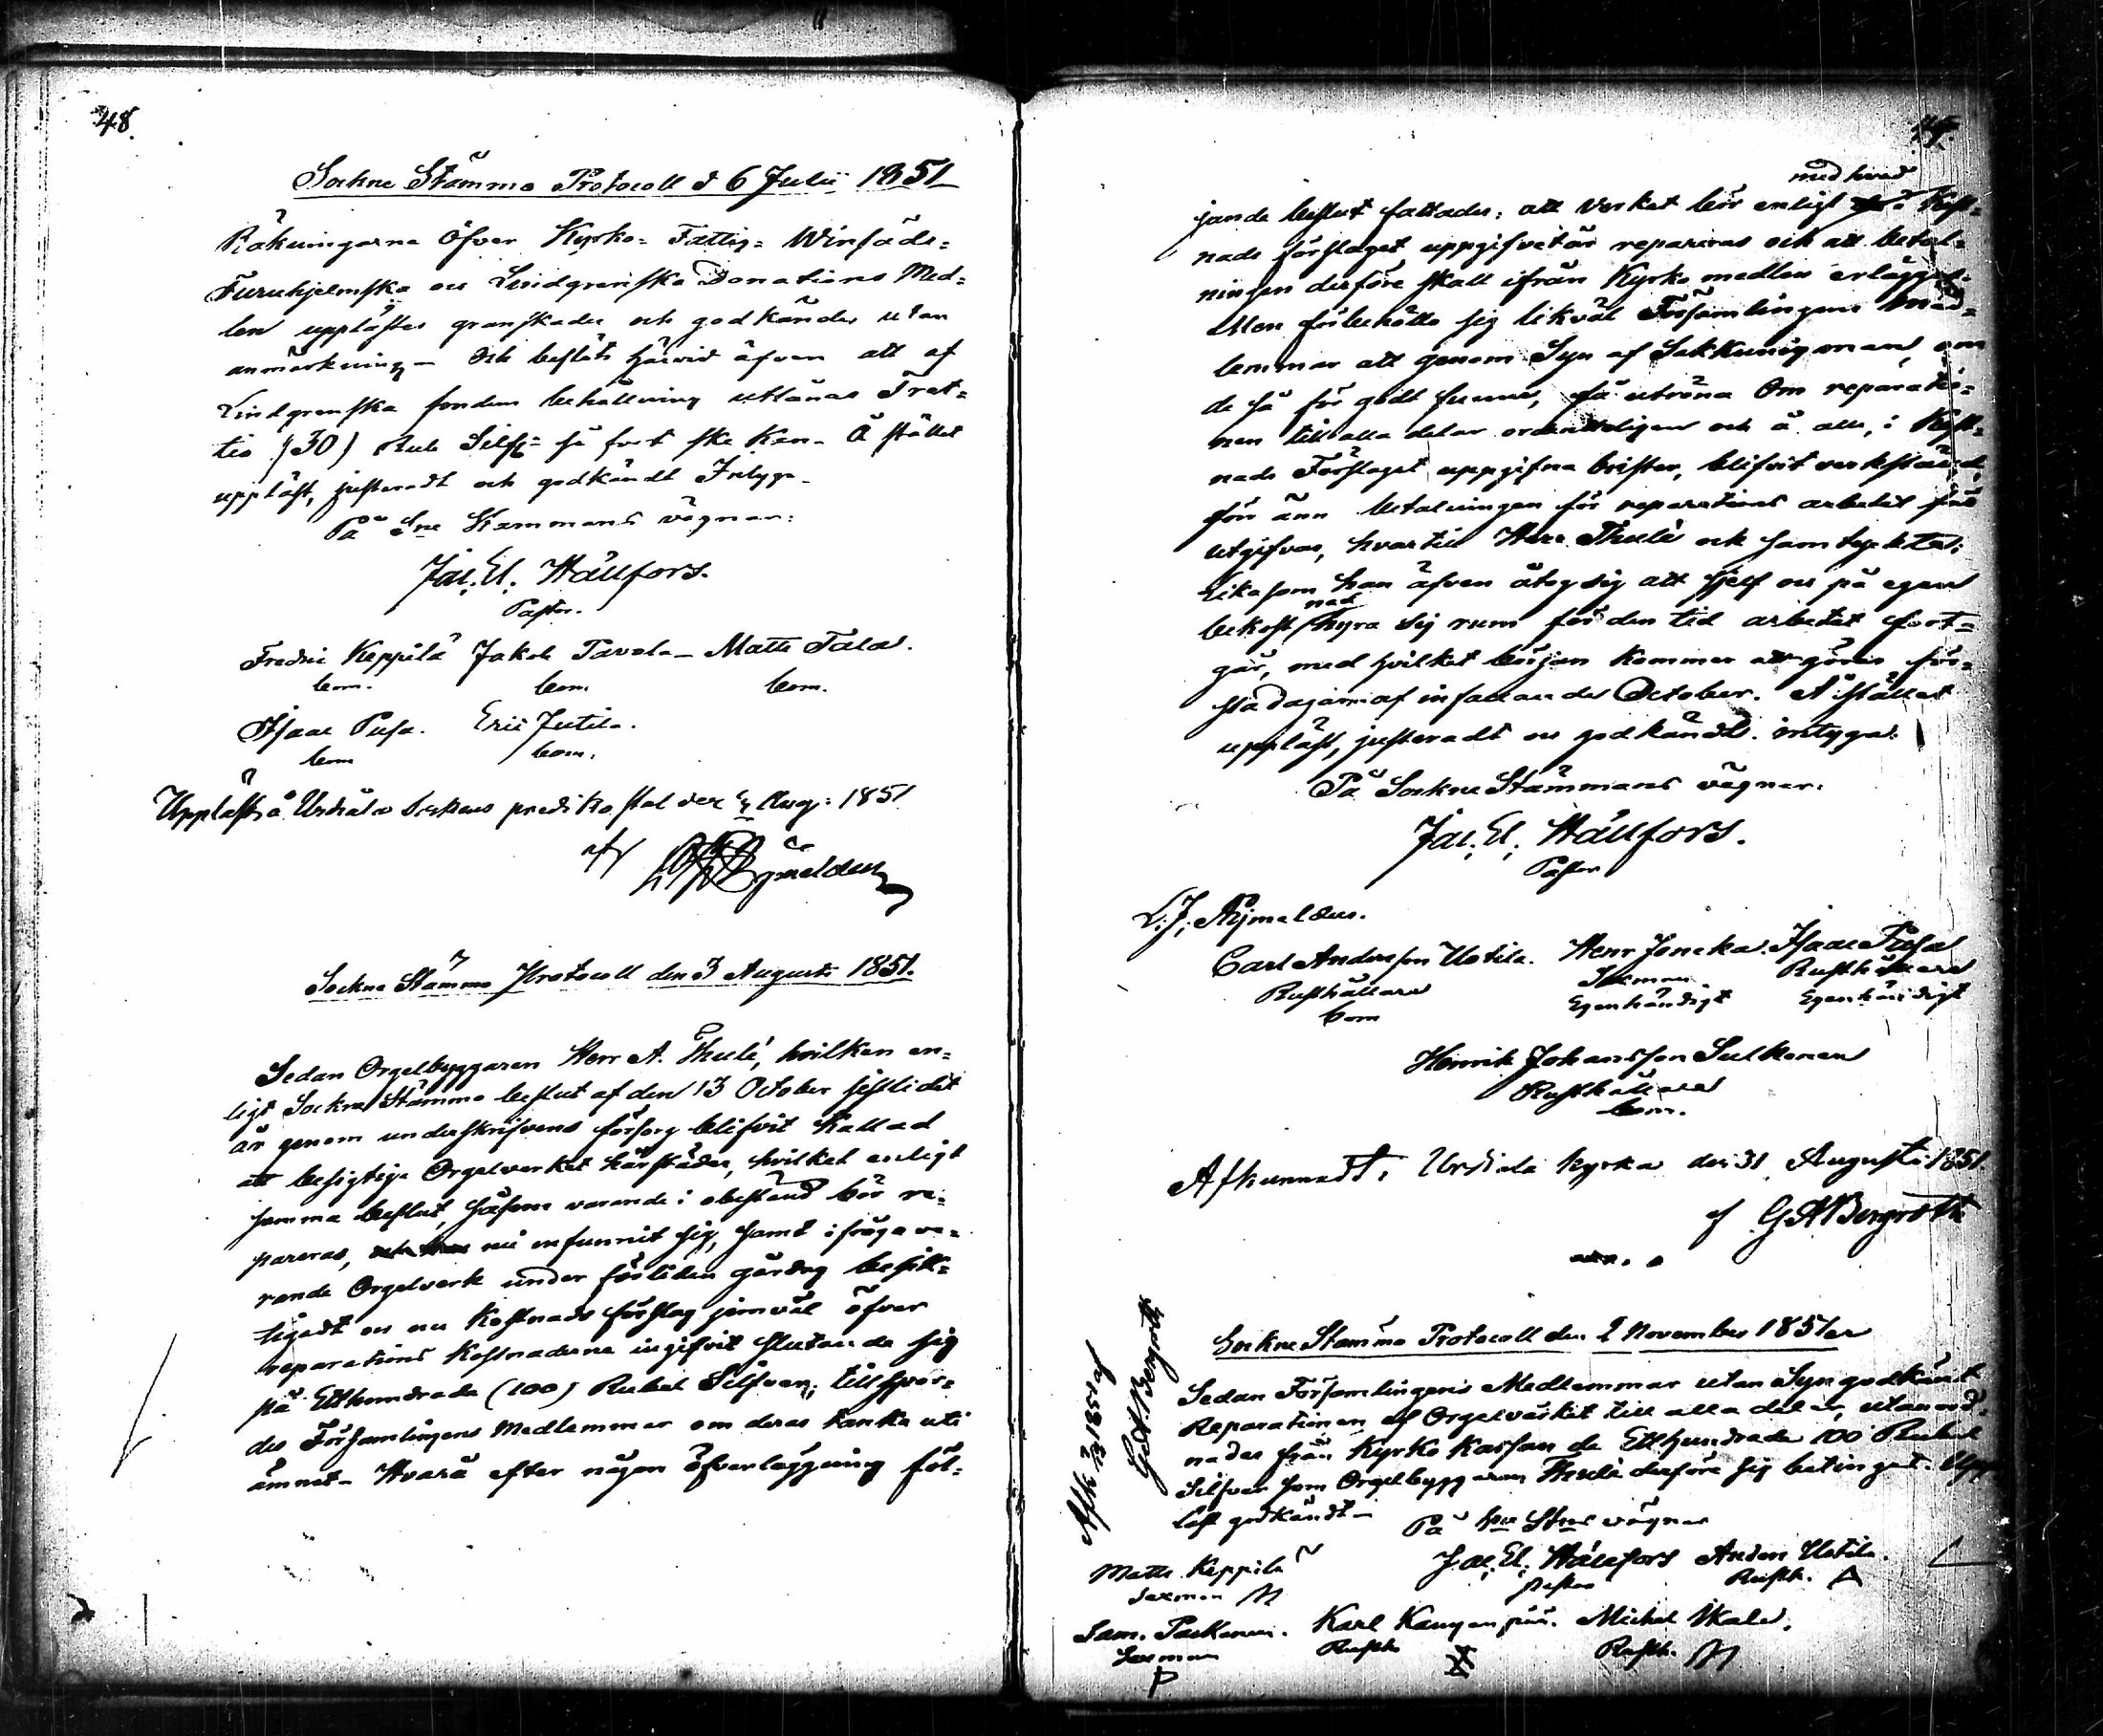 48.
Sockne Stämma Protocoll d 6 Julii 1851
Räkningarna öfver Kyrko- Fattig- Winfäds-
Furuhjelmska och Lindgrenska Donations Med-
len upplästes granskades och godkändes utan
anmärkning - Och beslöts härvid äfven att af
Lindgrenska fondens behållning utlånas Tret-
tio (30) Rub Silfr så fort ske kan. Å stället
uppläst, justeradt och godkändt Intyga.
På Sne Stämmans vägnar:
Jac. El. Hällfors.
Pastor.
Fredric Keppilä Jakob Tavela - Matts Tala.
bom. bom. bom.
Isaac Pusa. Eric Jutila.
bom bom.
Uppläst å Urdiala Kyrkans predikostol den Aug: 1851
af
Sockne Stämmo Protocoll den 3 Augusti 1851.
Sedan Orgelbyggaren Herr A. Thulé, hvilken en-
ligt Sockne Stämmo beslut af den 13 October sistlidit
år genom underskrifvens försorg blifvit kallad
att besigtiga Orgelverket härstädes, hvilket enligt
samma beslut, såsom varande i obestånd bör re-
pareras, nu infunnit sig, samt ifrågava-
rande Orgelverk under förliden gårdag besik-
tigadt och nu Kostnads förslag jemväl öfver
reparations kostnaderna ingifvit slutande sig
på Etthundrade (100) Rubel Silfver; tillspor-
des Församlingens Medlemmar om deras tanka uti
ämnet - Hvarå efter någon öfverläggning föl-
med hvad
jande beslut fattades: att Verket bör enligt i Kost-
nads förslaget uppgifvet är repareras och att betal-
ningen derföre skall ifrån Kyrko medlen erläggas.
Men förbehöllo sig likväl Församlingens Med-
lemmar att genom Syn af Sakkunnig man, om
de så för godt funne, få utröna Om reparatio-
nen till alla delar ordentligen och å alla, i Kost-
nads Förslaget uppgifna brister, blifvit verkstäld,
förr änn betalningen för reparations arbetet får
utgifvas, hvartill Herr Thulé ock samtyckte;
Likasom han äfven åtog sig att sjelf och på egen
nad
bekost hyra sig rum för den tid arbetet fort-
går, med hvilket början kommer att göras för-
sta dagarna af infallande October. Å stället
uppläst, justeradt och godkändt. intyga:
På Sockne Stämmans vägnar:
Jac. El. Hällfors.
Pastor
L. J. Nymalæus.
Carl Andersson Uotila. Henr Joncka. Isaac Pusa
Rusthållare Sexman. Rusthållare
bom Egenhändigt Egenhändigt
Henrik Johansson Sulkonen
Rusthållare
bom.
Afkunnadt i Urdiala Kyrka den 31 Augusti 1851
af G A Bergroth
Sockne Stämmo Protocoll den 2 November 1851
Sedan Församlingens Medlemmar utan Syn godkänt
Reparationen af Orgelvärket till alla delar, utanord-
nades från Kyrko Kassan de Etthundrade 100 Rubel
Silfver som Orgelbyggaren Thulé derföre sig betingat. Upp-
läst godkändt -
På Sne Stms vägnar
Jac. El. Hällfors Anders Uotila.
Pastor Rusth. A
Matts Keppilä
Sexman M
Sam. Packanen. Karl Kaugenpää. Michel Skala.
Sexman Rusth Rusth. M
P X
1851 af
G A Bergroth